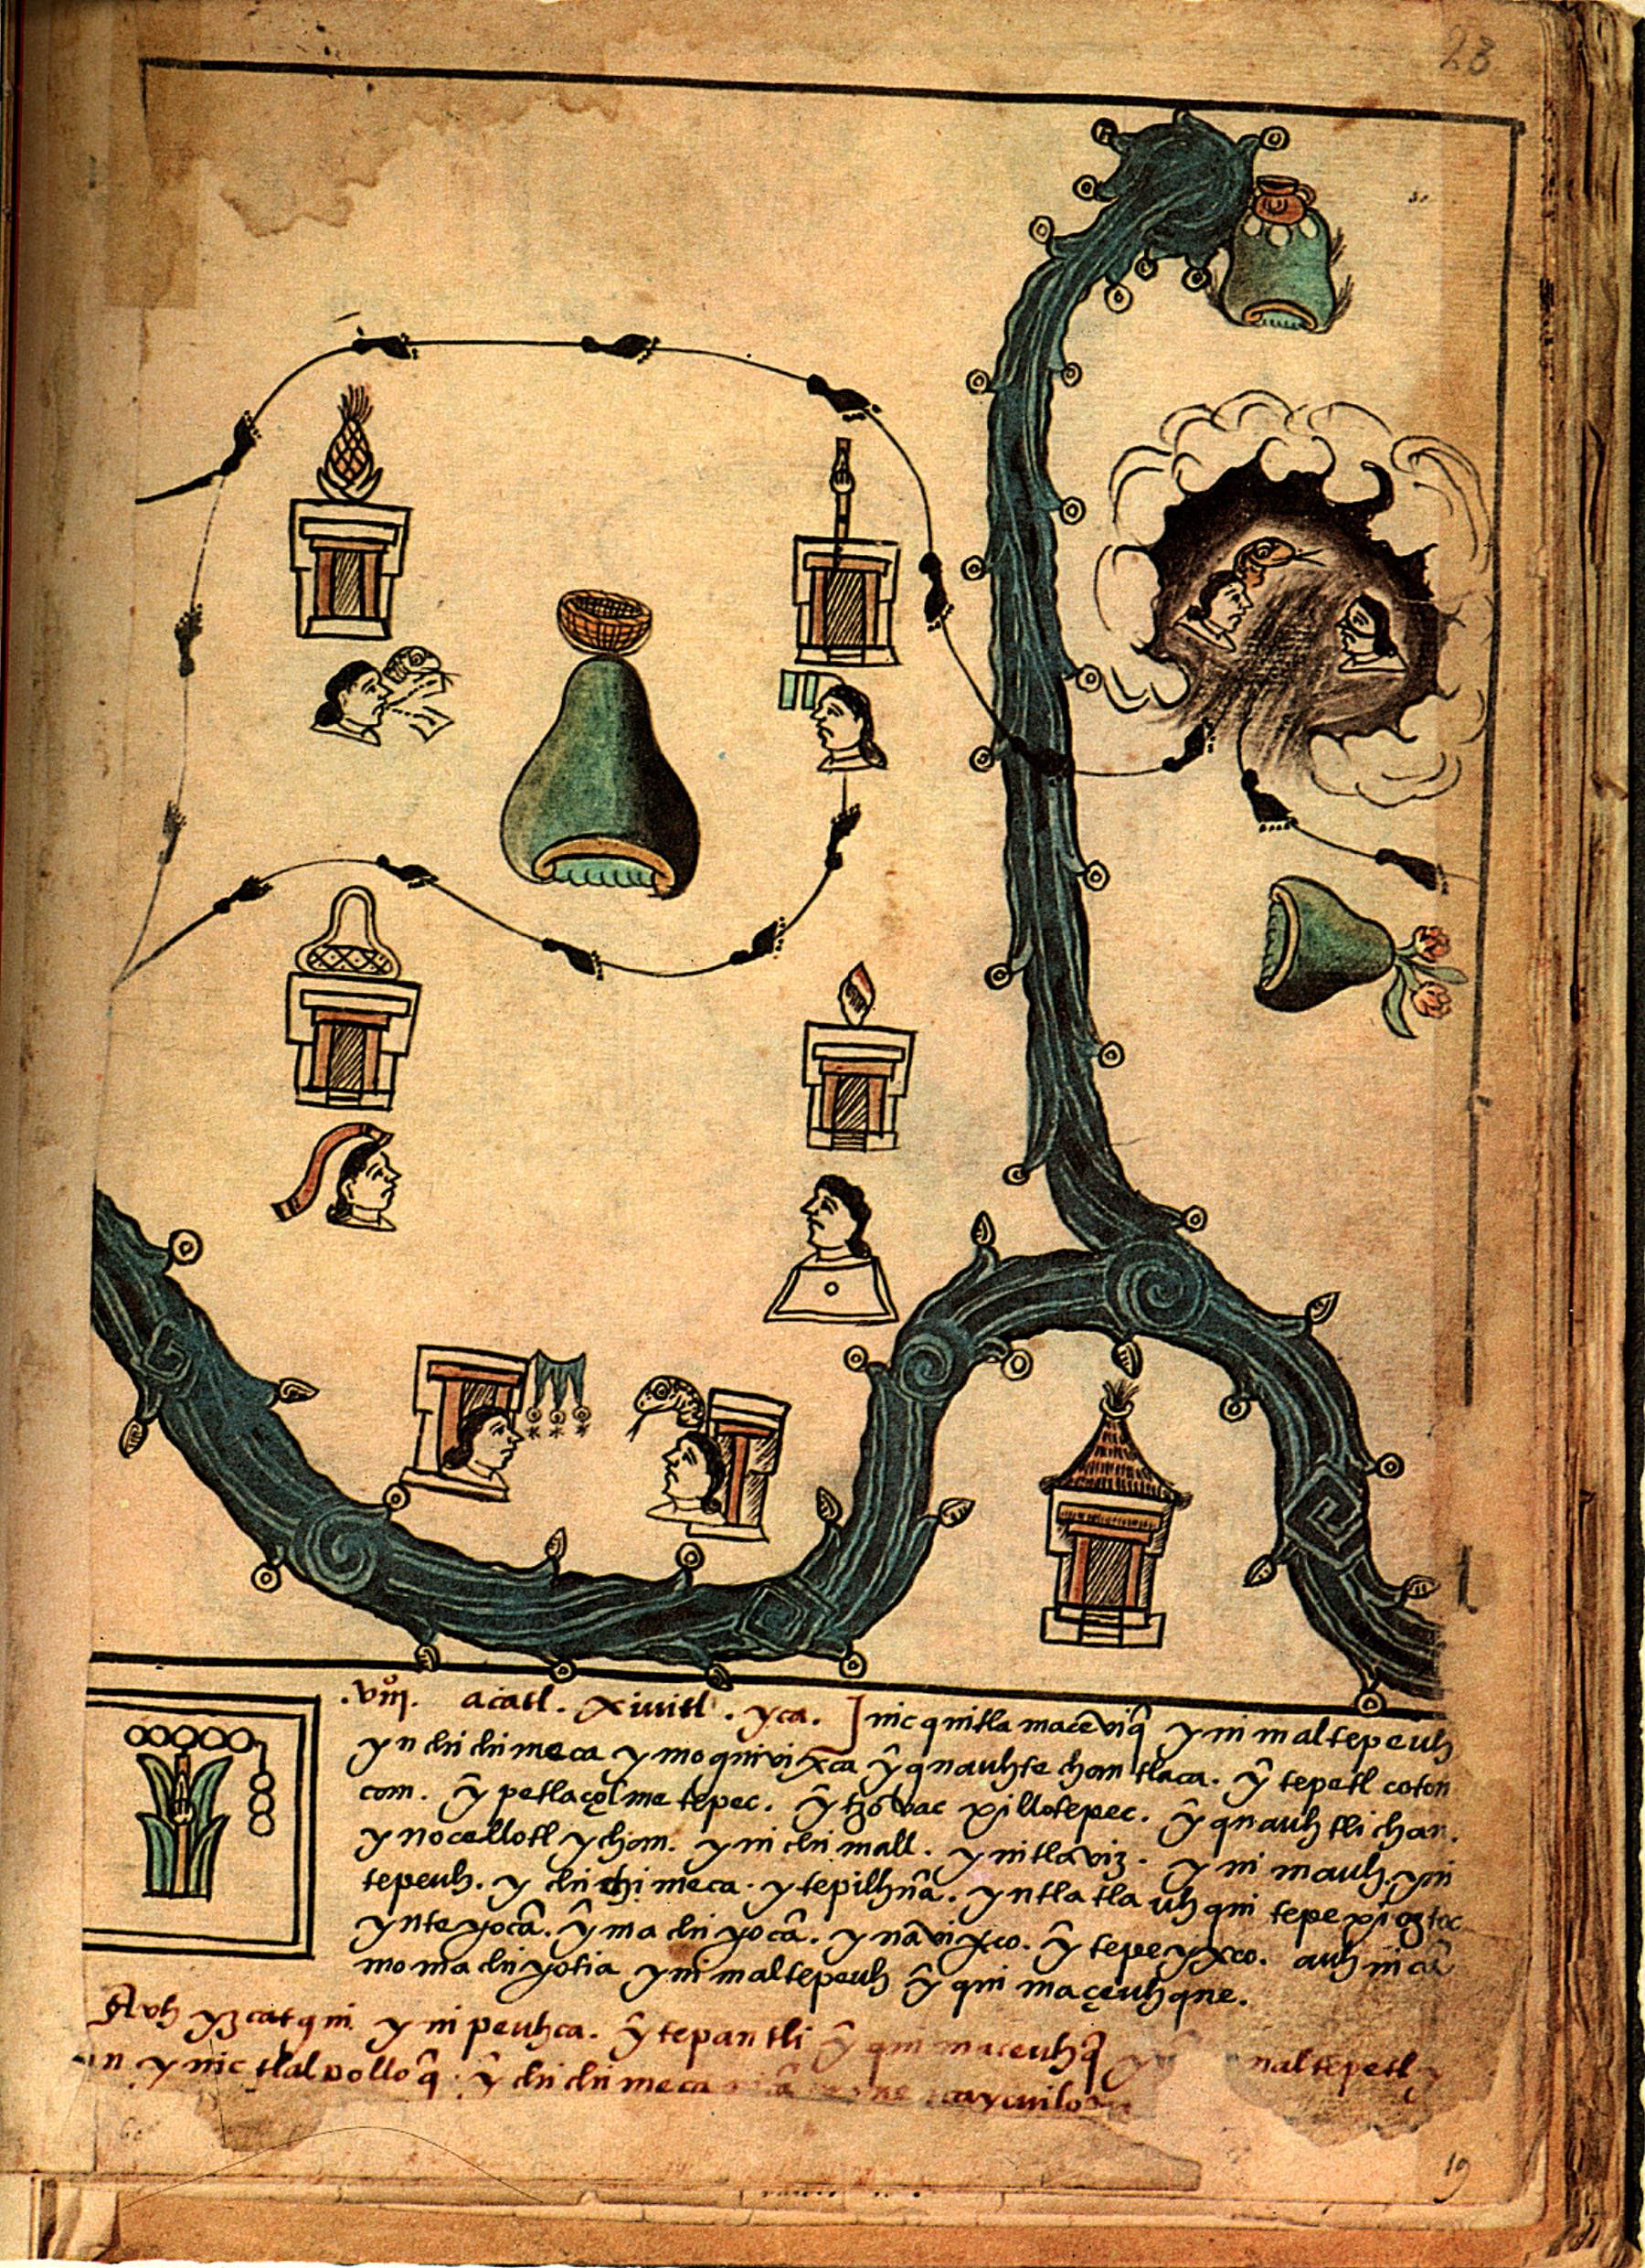 23
.viii. acatl. xiuitl. yca. Inic quitlamaceviq̃ yni maltepeuh
yn chichimeca ymoquivixca ỹ quauhtechan tlaca. ỹ tepetl coton
com. ỹ petlaçolmetepec. ỹ tzõvac xillotepec. ỹ quauhtli chan.
ynocellotl ychan. yni chimall. ynitlaviz. yni mauh. yni
tepeuh. y chichimeca. ytepilhuã. yntlatlauhqui tepexioztoc
ynteyocã. ỹ machiyocã. ynãvixco. ỹ tepeyxco. auh nicã
momachiyotia yni maltepeuh ỹ quimaçeuhque.
Auh yzcatqui yni peuhca. ỹ tepantli ỹ quimaceuhq̃ naltepetl y
ynic tlalpolloq̃. ỹ chichimeca
19